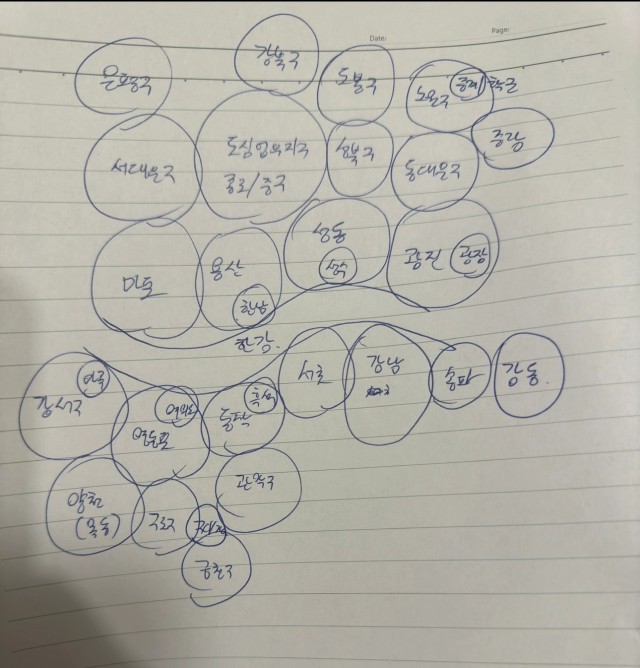 Date:
Page:
은평구
강북구
도봉구
노원구
중계
학군
중랑
서대문구
도심업무지구
종로/중구
성북구
동대문구
마포
용산
한남
성동
성수
광진
광장
한강.
강서구
마곡
영등포
여의도
동작
흑석
서초
강남
송파
강동.
양천
(목동)
구로구
관악구
금천구